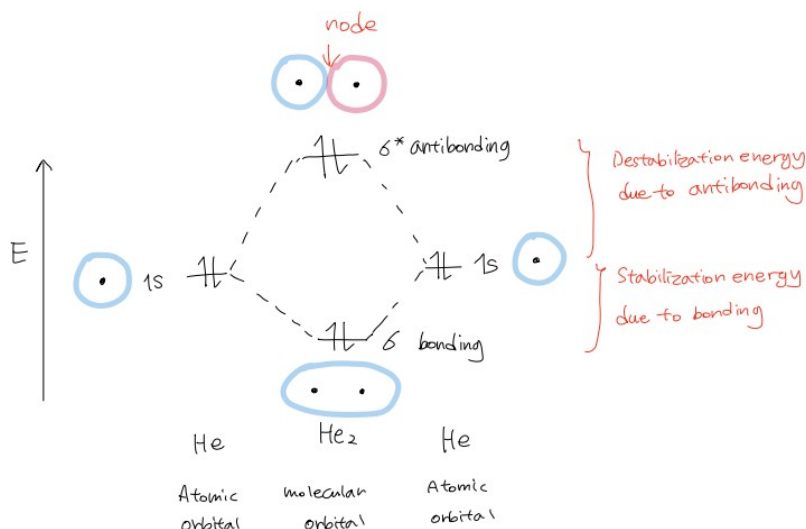 node
σ* antibonding
Destabilization energy
due to antibonding
E
1s
1s
Stabilization energy
due to bonding
σ bonding
He
He₂
He
Atomic
orbital
molecular
orbital
Atomic
orbital